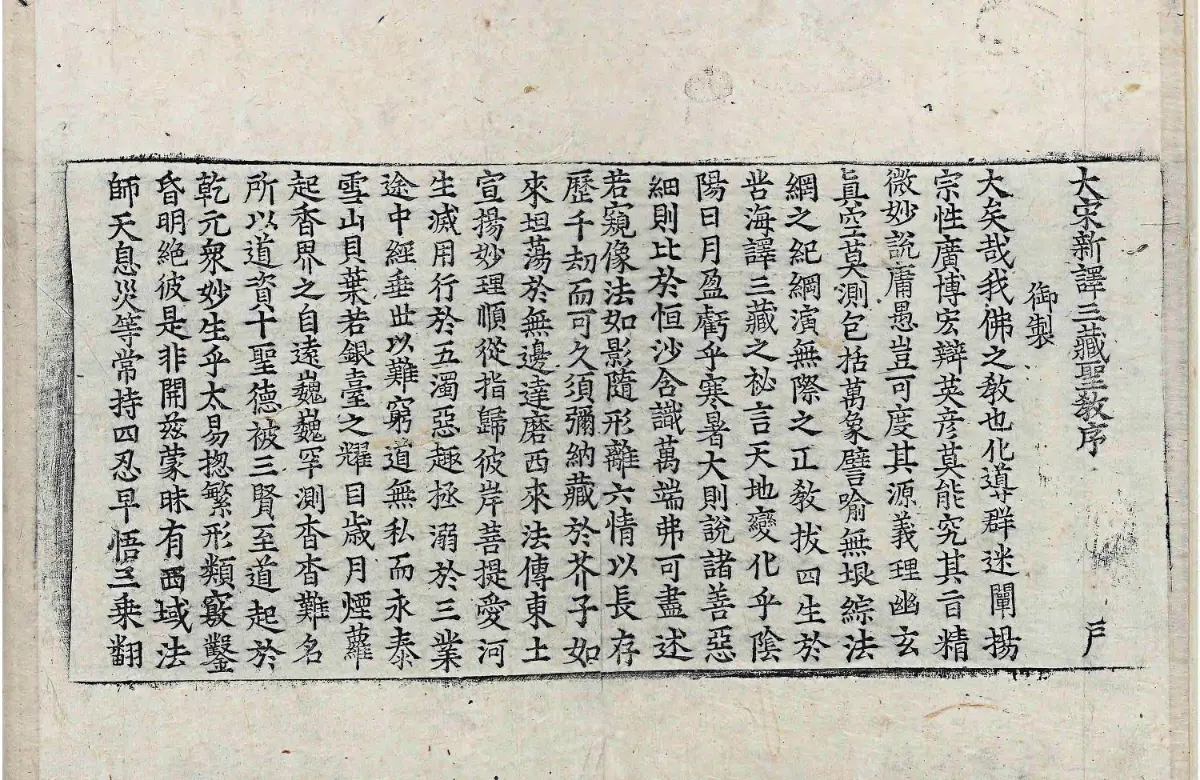 大宋新譯三藏聖教序
戶
御製
大矣哉我佛之教也化導群迷闡揚
宗性廣博宏辯英彥莫能究其旨精
微妙說庸愚豈可度其源義理幽玄
眞空莫測包括萬象譬喻無垠綜法
網之紀綱演無際之正教拔四生於
苦海譯三藏之祕言天地變化乎陰
陽日月盈虧乎寒暑大則說諸善惡
細則比於恒沙含識萬端弗可盡述
若窺像法如影隨形離六情以長存
歷千劫而可久須彌納藏於芥子如
來坦蕩於無邊達磨西來法傳東土
宣揚妙理順從指歸彼岸菩提愛河
生滅用行於五濁惡趣拯溺於三業
途中經垂世以難窮道無私而永泰
雪山貝葉若銀臺之耀目歲月煙蘿
起香界之自遠巍巍罕測杳杳難名
所以道資十聖德被三賢至道起於
乾元衆妙生乎太易揔繁形類竅鑿
昏明絕彼是非開兹蒙昧有西域法
師天息災等常持四忍早悟三乘翻